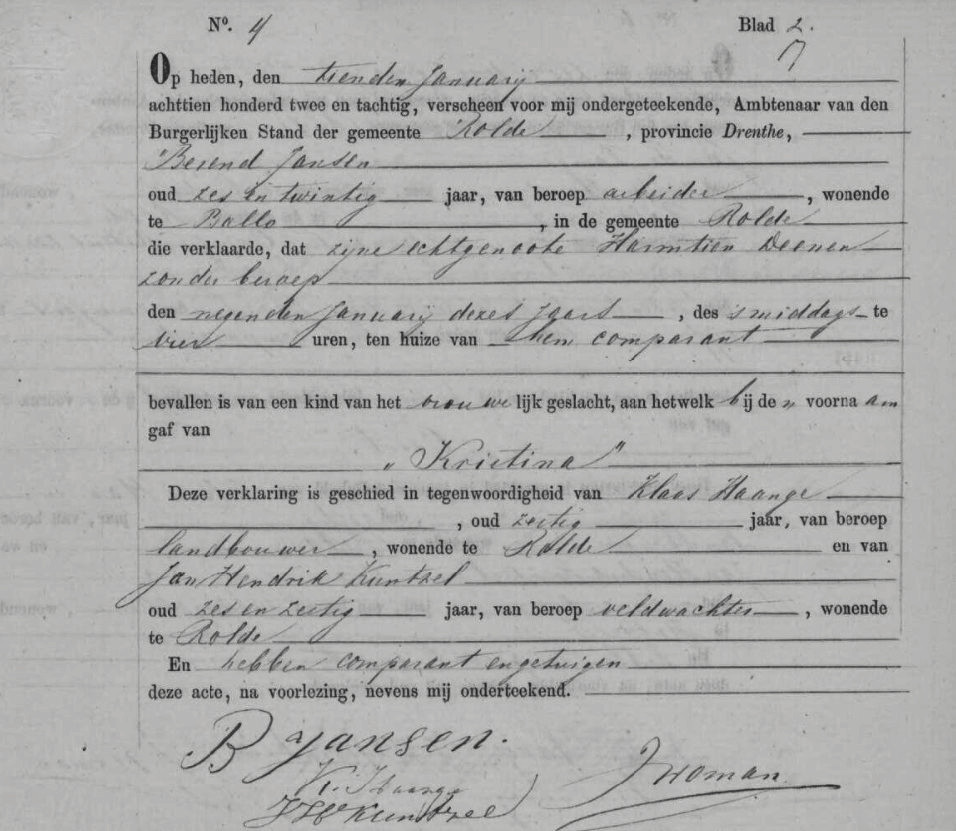 Nº. 4 Blad 2.
Op heden, den tienden Januarij
achttien honderd twee en tachtig, verscheen voor mij ondergeteekende, Ambtenaar van den
Burgerlijken Stand der gemeente Rolde, provincie Drenthe,
Berend Jansen
oud zes en twintig jaar, van beroep arbeider, wonende
te Ballo, in de gemeente Rolde
die verklaarde, dat zijne echtgenoote Harmtien Deenen
zonder beroep
den negenden Januarij dezes jaars, des 's middags te
vier uren, ten huize van hem comparant
bevallen is van een kind van het vrouwelijk geslacht, aan hetwelk bij de n voorna am
gaf van
„Kristina"
Deze verklaring is geschied in tegenwoordigheid van Klaas Haange
, oud zestig jaar, van beroep
landbouwer, wonende te Rolde en van
Jan Hendrik Kuntzel
oud zes en zestig jaar, van beroep veldwachter, wonende
te Rolde
En hebben comparant en getuigen
deze acte, na voorlezing, nevens mij onderteekend.
B Jansen.
K. Haange
JH Kuntzel